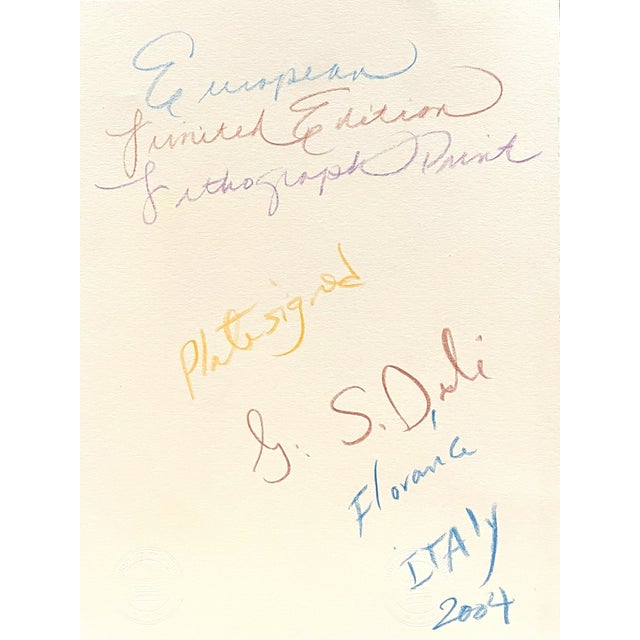 European
Limited Edition
Lithograph Print
Platesigned
G. S. Dali
Florance
ITAly
2004